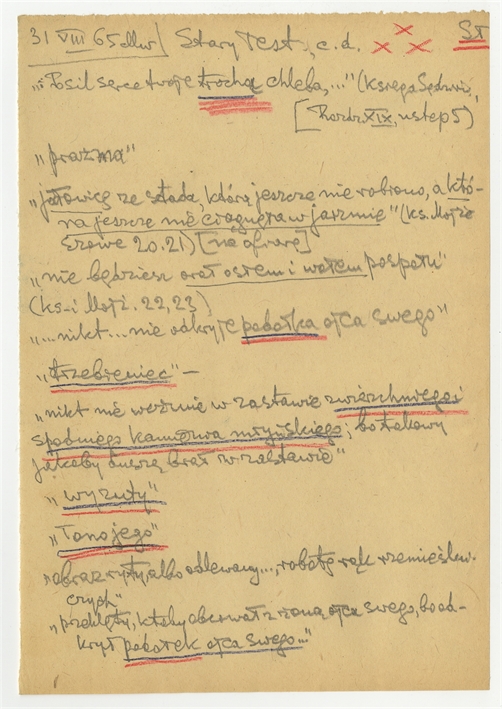 31 VIII 65 dlw/ Stary Test., c.d. ST
"Posil serce twoje trochą chleba,..." (Księga Sędziów,
[Rozdz. XIX, ustęp 5)
"prażma"
"jałowicę ze stada, którą jeszcze nie robiono, a któ-
ra jeszcze nie ciągnęła w jarzmie" (ks. Mojże
szowe 20.21) [na ofiarę]
"nie będziesz orał osłem i wołem pospołu"
(ks-i Mojż. 22,23)
"...nikt... nie odkryje podołka ojca swego"
"trzebieniec" –
"nikt nie weźmie w zastawie zwierzchniego i
spodniego kamienia młyńskiego; bo takowy
jakoby duszę brał w zastawie"
"wyzuty"
"Tonojego"
"obraz ryty, albo odlewany..., robotę rąk rzemieślni-
czych"
"przeklęty, któryby obcował z żoną ojca swego, bo od-
krył podołek ojca swego..."